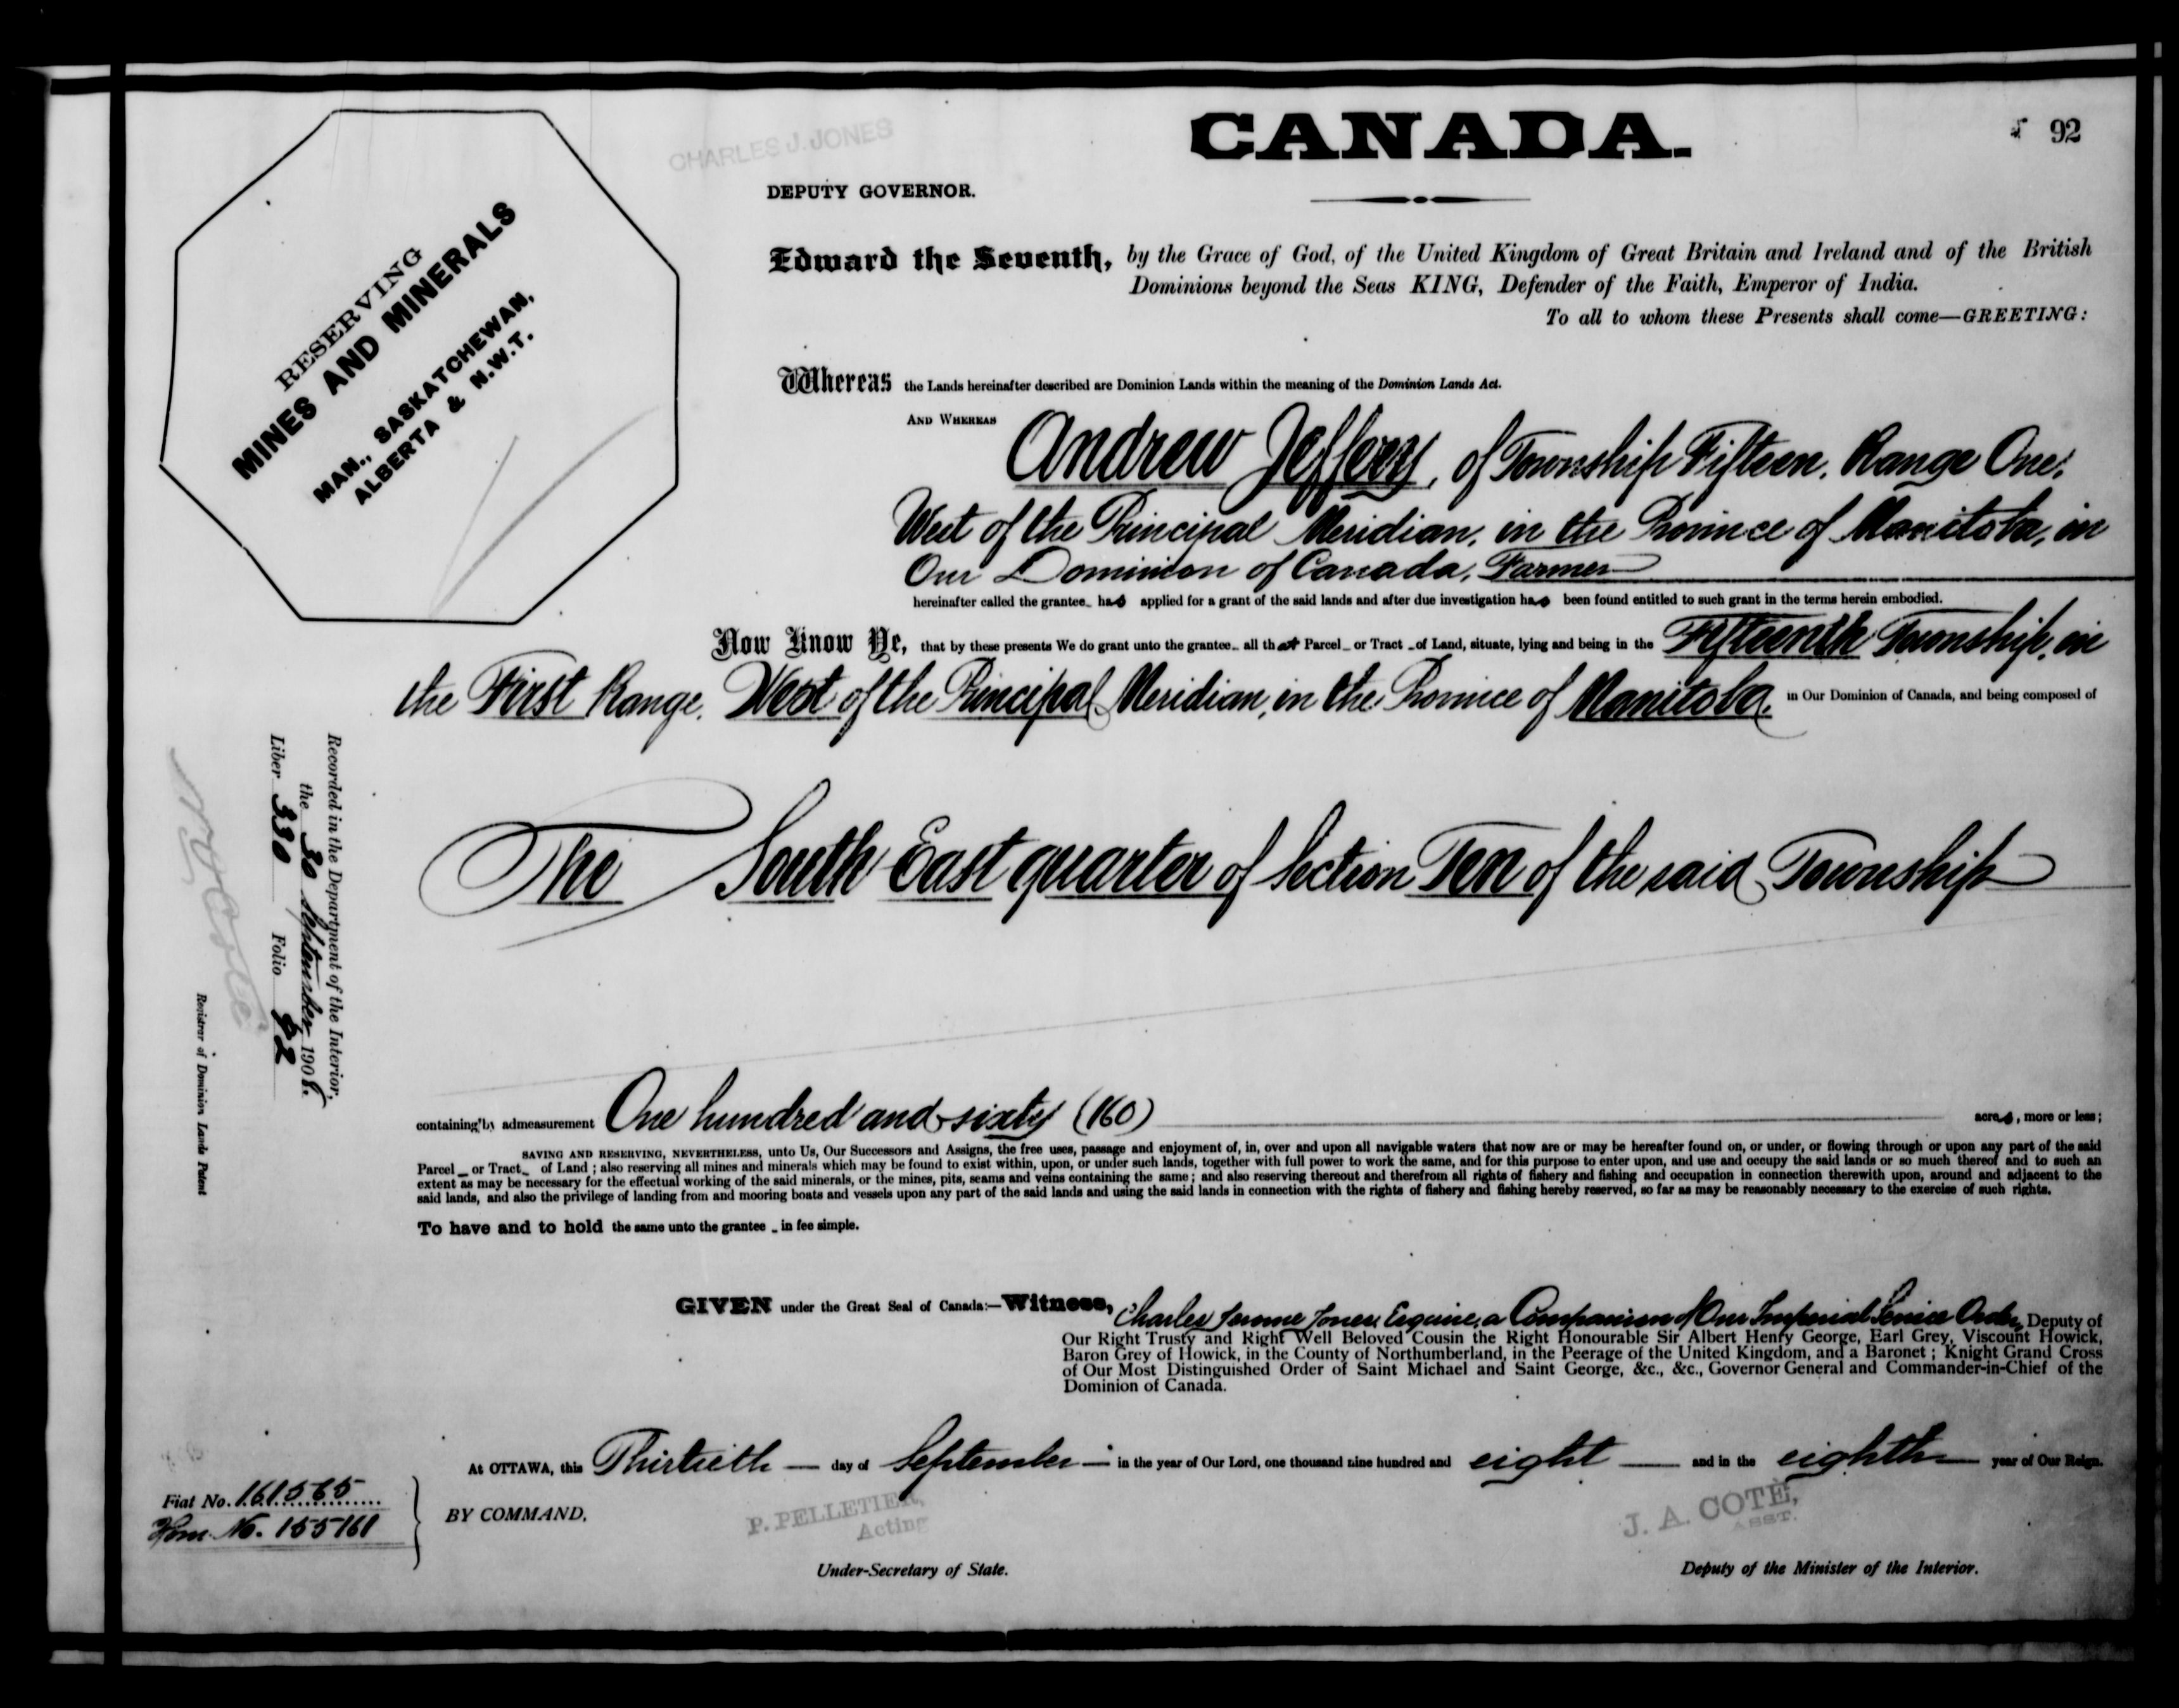 CANADA.
92
CHARLES J. JONES
DEPUTY GOVERNOR.
RESERVING
MINES AND MINERALS
MAN., SASKATCHEWAN,
ALBERTA & N.W.T.
Edward the Seventh, by the Grace of God, of the United Kingdom of Great Britain and Ireland and of the British
Dominions beyond the Seas KING, Defender of the Faith, Emperor of India.
To all to whom these Presents shall come—GREETING:
Whereas the Lands hereinafter described are Dominion Lands within the meaning of the Dominion Lands Act.
AND WHEREAS Andrew Jeffery, of Township Fifteen, Range One,
West of the Principal Meridian, in the Province of Manitoba, in
Our Dominion of Canada, Farmer
hereinafter called the grantee has applied for a grant of the said lands and after due investigation has been found entitled to such grant in the terms herein embodied.
Now Know Ye, that by these presents We do grant unto the grantee all that Parcel or Tract of Land, situate, lying and being in the Fifteenth Township, in
the First Range, West of the Principal Meridian, in the Province of Manitoba, in Our Dominion of Canada, and being composed of
The South East quarter of Section Ten of the said Township
Recorded in the Department of the Interior,
the 30 September 1908.
Liber 330 Folio 92
Registrar of Dominion Lands Patent
containing by admeasurement One hundred and sixty (160) acres, more or less;
SAVING AND RESERVING, NEVERTHELESS, unto Us, Our Successors and Assigns, the free uses, passage and enjoyment of, in, over and upon all navigable waters that now are or may be hereafter found on, or under, or flowing through or upon any part of the said
Parcel or Tract of Land; also reserving all mines and minerals which may be found to exist within, upon, or under such lands, together with full power to work the same, and for this purpose to enter upon, and use and occupy the said lands or so much thereof and to such an
extent as may be necessary for the effectual working of the said minerals, or the mines, pits, seams and veins containing the same; and also reserving thereout and therefrom all rights of fishery and fishing and occupation in connection therewith upon, around and adjacent to the
said lands, and also the privilege of landing from and mooring boats and vessels upon any part of the said lands and using the said lands in connection with the rights of fishery and fishing hereby reserved, so far as may be reasonably necessary to the exercise of such rights.
To have and to hold the same unto the grantee in fee simple.
GIVEN under the Great Seal of Canada:—Witness, Charles Jerome Jones, Esquire, a Companion of Our Imperial Service Order, Deputy of
Our Right Trusty and Right Well Beloved Cousin the Right Honourable Sir Albert Henry George, Earl Grey, Viscount Howick,
Baron Grey of Howick, in the County of Northumberland, in the Peerage of the United Kingdom, and a Baronet; Knight Grand Cross
of Our Most Distinguished Order of Saint Michael and Saint George, &c., &c., Governor General and Commander-in-Chief of the
Dominion of Canada.
At OTTAWA, this Thirtieth — day of September — in the year of Our Lord, one thousand nine hundred and eight — and in the eighth — year of Our Reign.
Fiat No. 161565
Hom. No. 155161
BY COMMAND,
P. PELLETIER,
Acting
Under-Secretary of State.
J. A. COTÉ,
ASST.
Deputy of the Minister of the Interior.